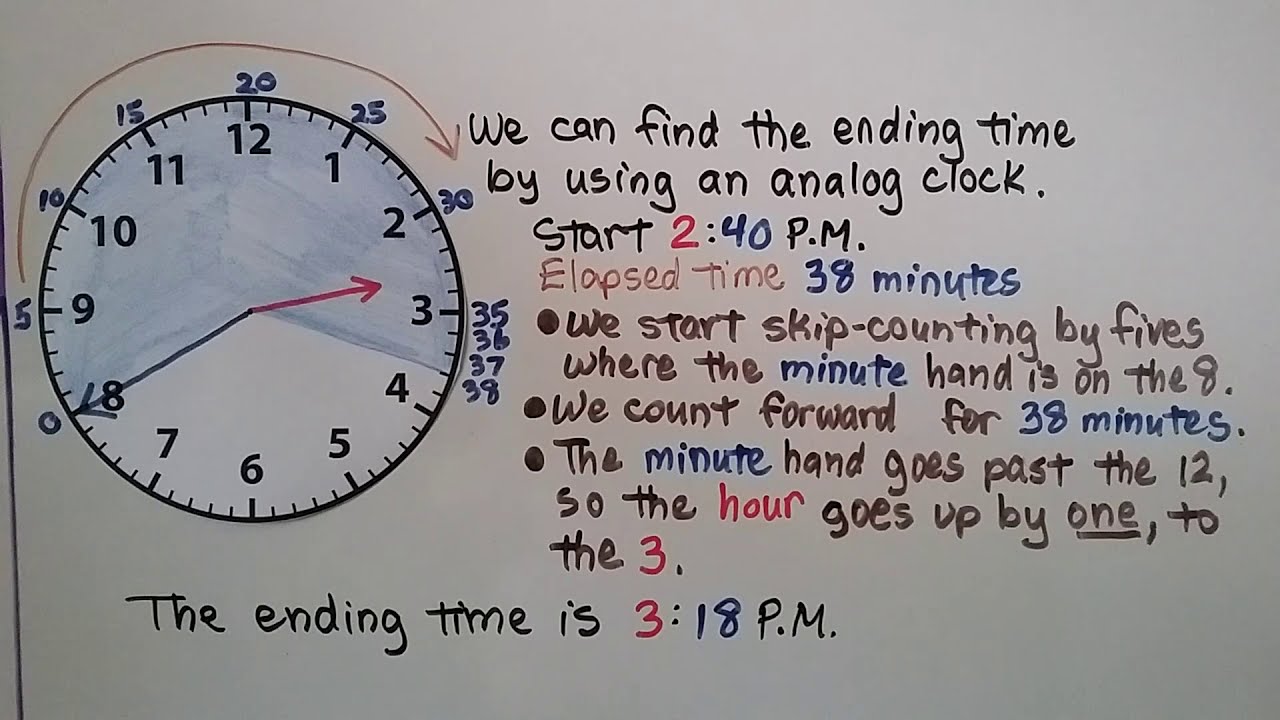 20
15
25
12
11
1
10
30
10
2
5
9
3
35
36
37
38
0
8
4
7
5
6
We can find the ending time
by using an analog clock.
Start 2:40 P.M.
Elapsed time 38 minutes
• We start skip-counting by fives
where the minute hand is on the 8.
• We count forward for 38 minutes.
• The minute hand goes past the 12,
so the hour goes up by one, to
the 3.
The ending time is 3:18 P.M.